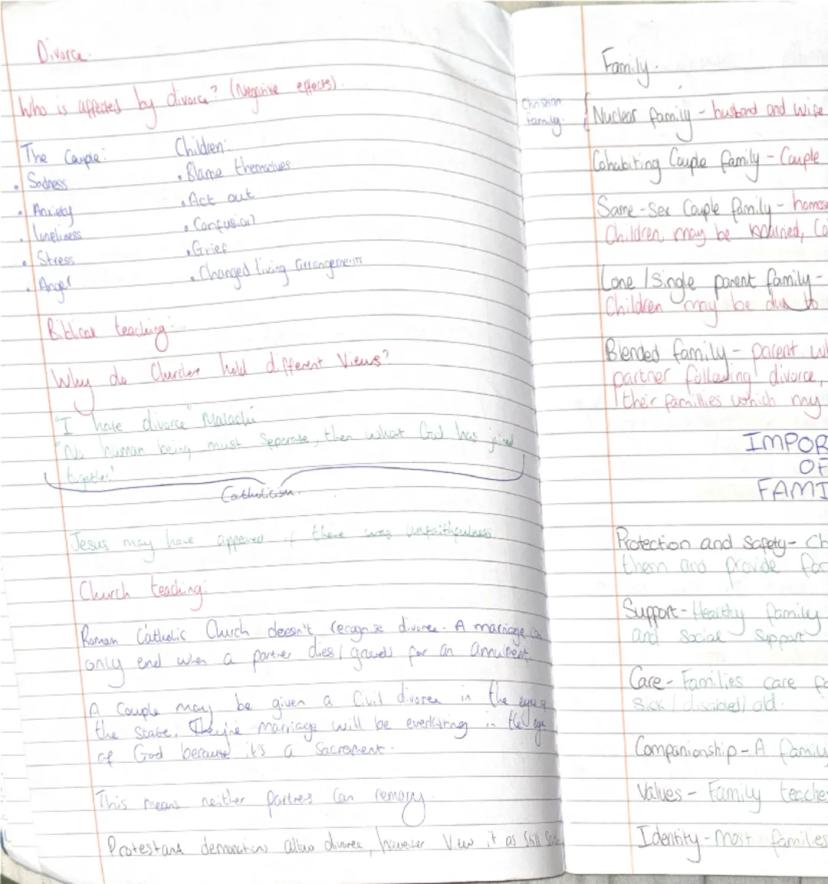 Divorce.
Who is affected by divorce? (Negative effects).
The Couple:
• Sadness
• Anxiety
• Loneliness
• Stress
• Anger
Children:
• Blame themselves
• Act out
• Confusion
• Grief
• Changed living arrangements
Biblical teaching:
Why do Churches hold different Views?
"I hate divorce" Malachi
"No human being must separate, then what God has joined
together"
Catholicism.
Jesus may have if there was unfaithfulness.
Church teaching:
Roman Catholic Church doesn't recognise divorce. A marriage can
only end when a partner dies/grounds for an annulment.
A Couple may be given a Civil divorce in the eyes of
the state. marriage will be everlasting in the eyes
of God because it's a Sacrement.
This means neither partners can remarry.
Protestant allow divorce, however View it as Still
Family.
Christian
family.
Nuclear family - husband and wife
Cohabiting Couple family - Couple
Same-Sex Couple family -
Children may be
Lone/Single parent family -
Children may be due to
Blended family - parent
partner following divorce,
their famillies which may
IMPOR
OF
FAMI
Protection and Safety - Ch
them and provide for
Support - Healthy family
and social support
Care - Families care fo
sick/disabled/old.
Companionship - A family
Values - Family teache
Identity - most families